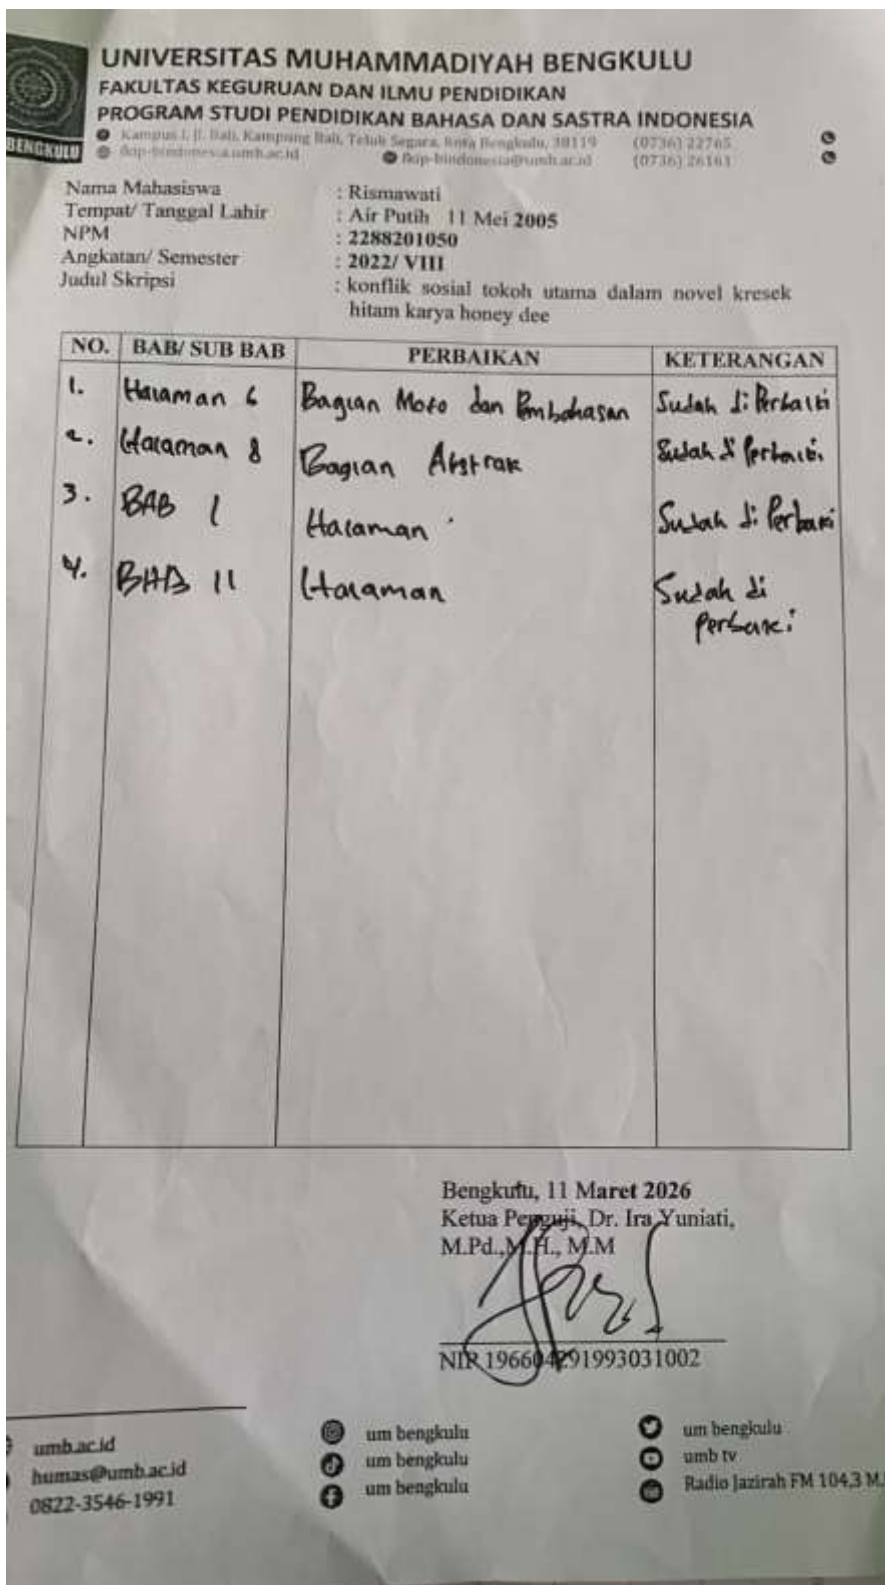 UNIVERSITAS MUHAMMADIYAH BENGKULU
FAKULTAS KEGURUAN DAN ILMU PENDIDIKAN
PROGRAM STUDI PENDIDIKAN BAHASA DAN SASTRA INDONESIA
BENGKULU
Kampus I, Jl. Bali, Kampung Bali, Teluk Segara, Kota Bengkulu, 38119 (0736) 22765
fkip-bindonesia.umb.ac.id fkip-bindonesia@umb.ac.id (0736) 26161
Nama Mahasiswa : Rismawati
Tempat/ Tanggal Lahir : Air Putih 11 Mei 2005
NPM : 2288201050
Angkatan/ Semester : 2022/ VIII
Judul Skripsi : konflik sosial tokoh utama dalam novel kresek
hitam karya honey dee
NO. BAB/ SUB BAB PERBAIKAN KETERANGAN
1. Halaman 6 Bagian Moto dan Pembahasan Sudah di Perbaiki
2. Halaman 8 Bagian Abstrak Sudah di Perbaiki
3. BAB I Halaman Sudah di Perbaiki
4. BAB II Halaman Sudah di
Perbaiki
Bengkulu, 11 Maret 2026
Ketua Penguji, Dr. Ira Yuniati,
M.Pd.,M.H., M.M
NIP.196604291993031002
umb.ac.id um bengkulu um bengkulu
humas@umb.ac.id um bengkulu umb tv
0822-3546-1991 um bengkulu Radio Jazirah FM 104,3 M